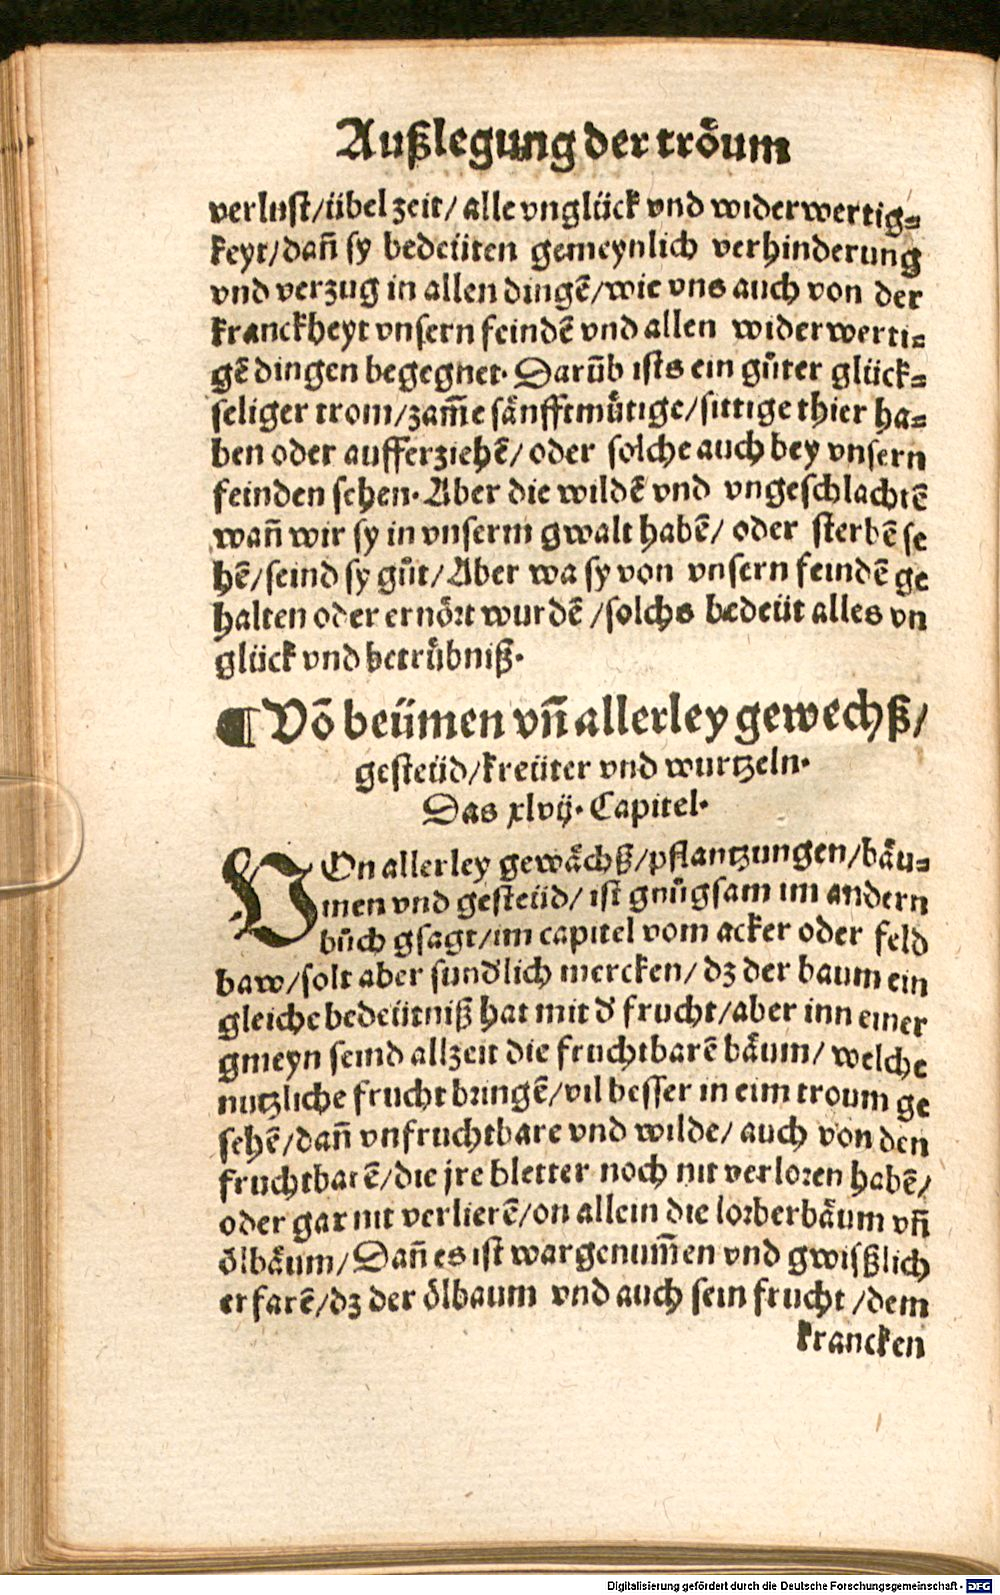 Außlegung der tröum
verlust/übel zeit/ alle vnglück vnd widerwertig-
keyt/dañ sy bedeüten gemeynlich verhinderung
vnd verzug in allen dingẽ/wie vns auch von der
kranckheyt vnsern feindẽ vnd allen widerwerti-
gẽ dingen begegnet. Darũb ists ein gůter glück-
seliger trom/zam̃e sänfftmütige/sittige thier ha-
ben oder aufferziehẽ/ oder solche auch bey vnsern
feinden sehen. Aber die wildẽ vnd vngeschlachtẽ
wañ wir sy in vnserm gwalt habẽ/ oder sterbẽ se
hẽ/seind sy gůt/Aber wa sy von vnsern feindẽ ge
halten oder ernört wurdẽ /solchs bedeüt alles vn
glück vnd betrübniß.
¶ Võ beümen vñ allerley gewechß/
gesteüd/kreüter vnd wurtzeln.
Das xlvij. Capitel.
VOn allerley gewächß/pflantzungen/bäu-
men vnd gesteüd/ ist gnůgsam im andern
bůch gsagt/im capitel vom acker oder feld
baw/solt aber sunđlich mercken/ dz der baum ein
gleiche bedeütniß hat mit đ frucht/aber inn einer
gmeyn seind allzeit die fruchtbarẽ bäum/ welche
nutzliche frucht bringẽ/vil besser in eim troum ge
sehẽ/dañ vnfruchtbare vnd wilde/ auch von den
fruchtbarẽ/die jre bletter noch nit verloren habẽ/
oder gar nit verlierẽ/on allein die lorberbäum vñ
ölbäum/Dañ es ist wargenum̃en vnd gwißlich
erfarẽ/dz der ölbaum vnd auch sein frucht /dem
krancken
Digitalisierung gefördert durch die Deutsche Forschungsgemeinschaft - DFG